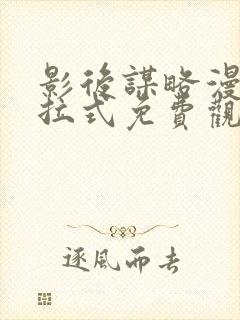 影後謀略漫
拉式免費觀
逐風而去